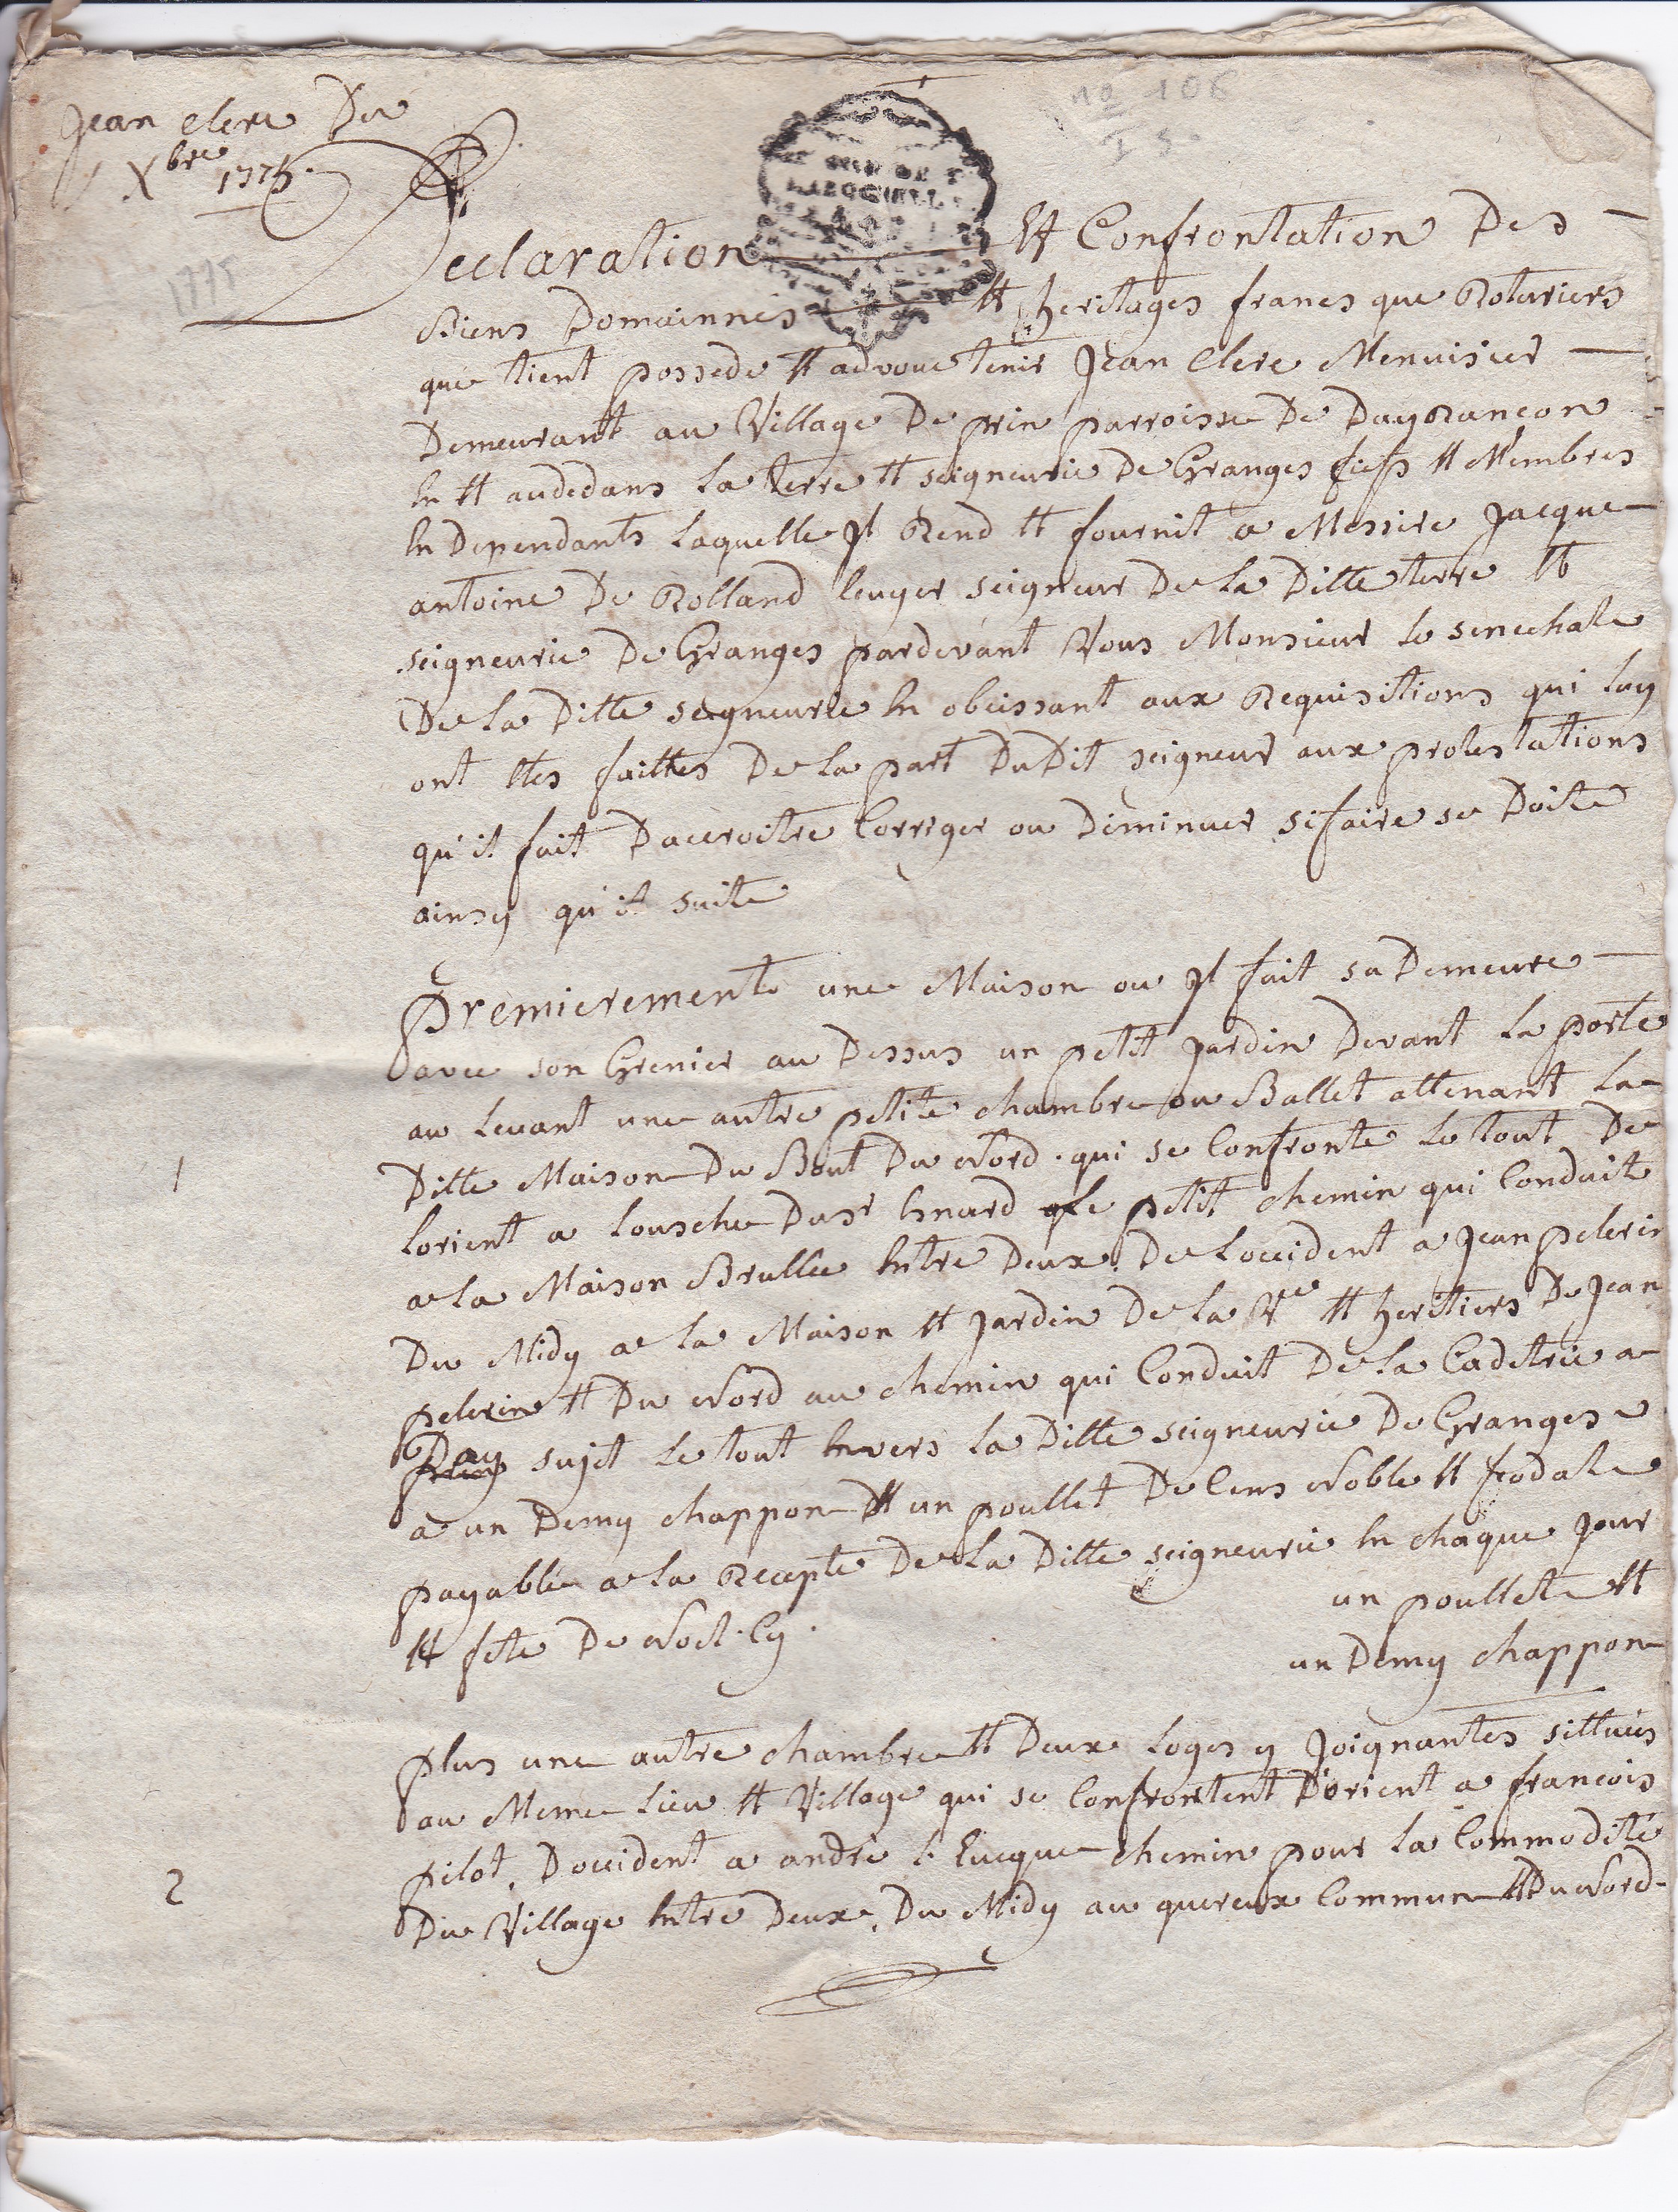 Jean Clerc Du
1 Xbre 1775.
1775
no 106
I 5.
Declaration Et Confrontation Des
Biens Domainnes Et heritages francs que Roturiers
que tient possede Et advoue tenir Jean Clerc Menuisier
Demeurant au Village De prin parroisse De Day Rançon
En Et audedans la terre Et seigneurie De Granges fiefs Et Membres
En Dependants Laquelle Jl Rend Et fournit a Messire Jacque
antoine De Rolland seigneur De La Ditte terre Et
seigneurie De Granges pardevant Vous Monsieur le senechale
De La Ditte seigneurie En obeissant aux Requisitions qui luy
ont Etes faittes De La part DuDit seigneur aux protestations
qu'il fait Daccroitre Corriger ou Diminuer si faire se Doite
ainsy qu'il suite
Premierement une Maison ou Jl fait sa Demeure
avec son Grenier au Dessus un petit Jardin Devant La porte
au Levant une autre petite chambre ou Ballet attenant La
1 Ditte Maison Du Bout Du Nord. qui se Confronte Le tout De
Lorient a Lousche Du Sr Enard le petit chemin qui Conduit
a La Maison Brullee Entre Deux. De Loccident a Jean pelerin
Du Midy a La Maison Et Jardin De La Ve Et heritiers De Jean
pelerin Et Du Nord au chemin qui Conduit De La Cadetrie a
Day sujet Le tout Envers La Ditte seigneurie De Granges
a un Demy chappon Et un poullet De Cens Noble Et feodale
payable a La Recepte De La Ditte seigneurie En chaque Jour
Et fete De Noel. Cy.
un poullete Et
un Demy chappon
plus une autre chambre Et Deux Loges y Joignantes sittuées
au Meme Lieu Et Village qui se Confrontent D'orient a francois
2 pilot, Doccident a andre chemin pour La Commodité
Du Village Entre Deux, Du Midy au quereux Commun Et Du Nord